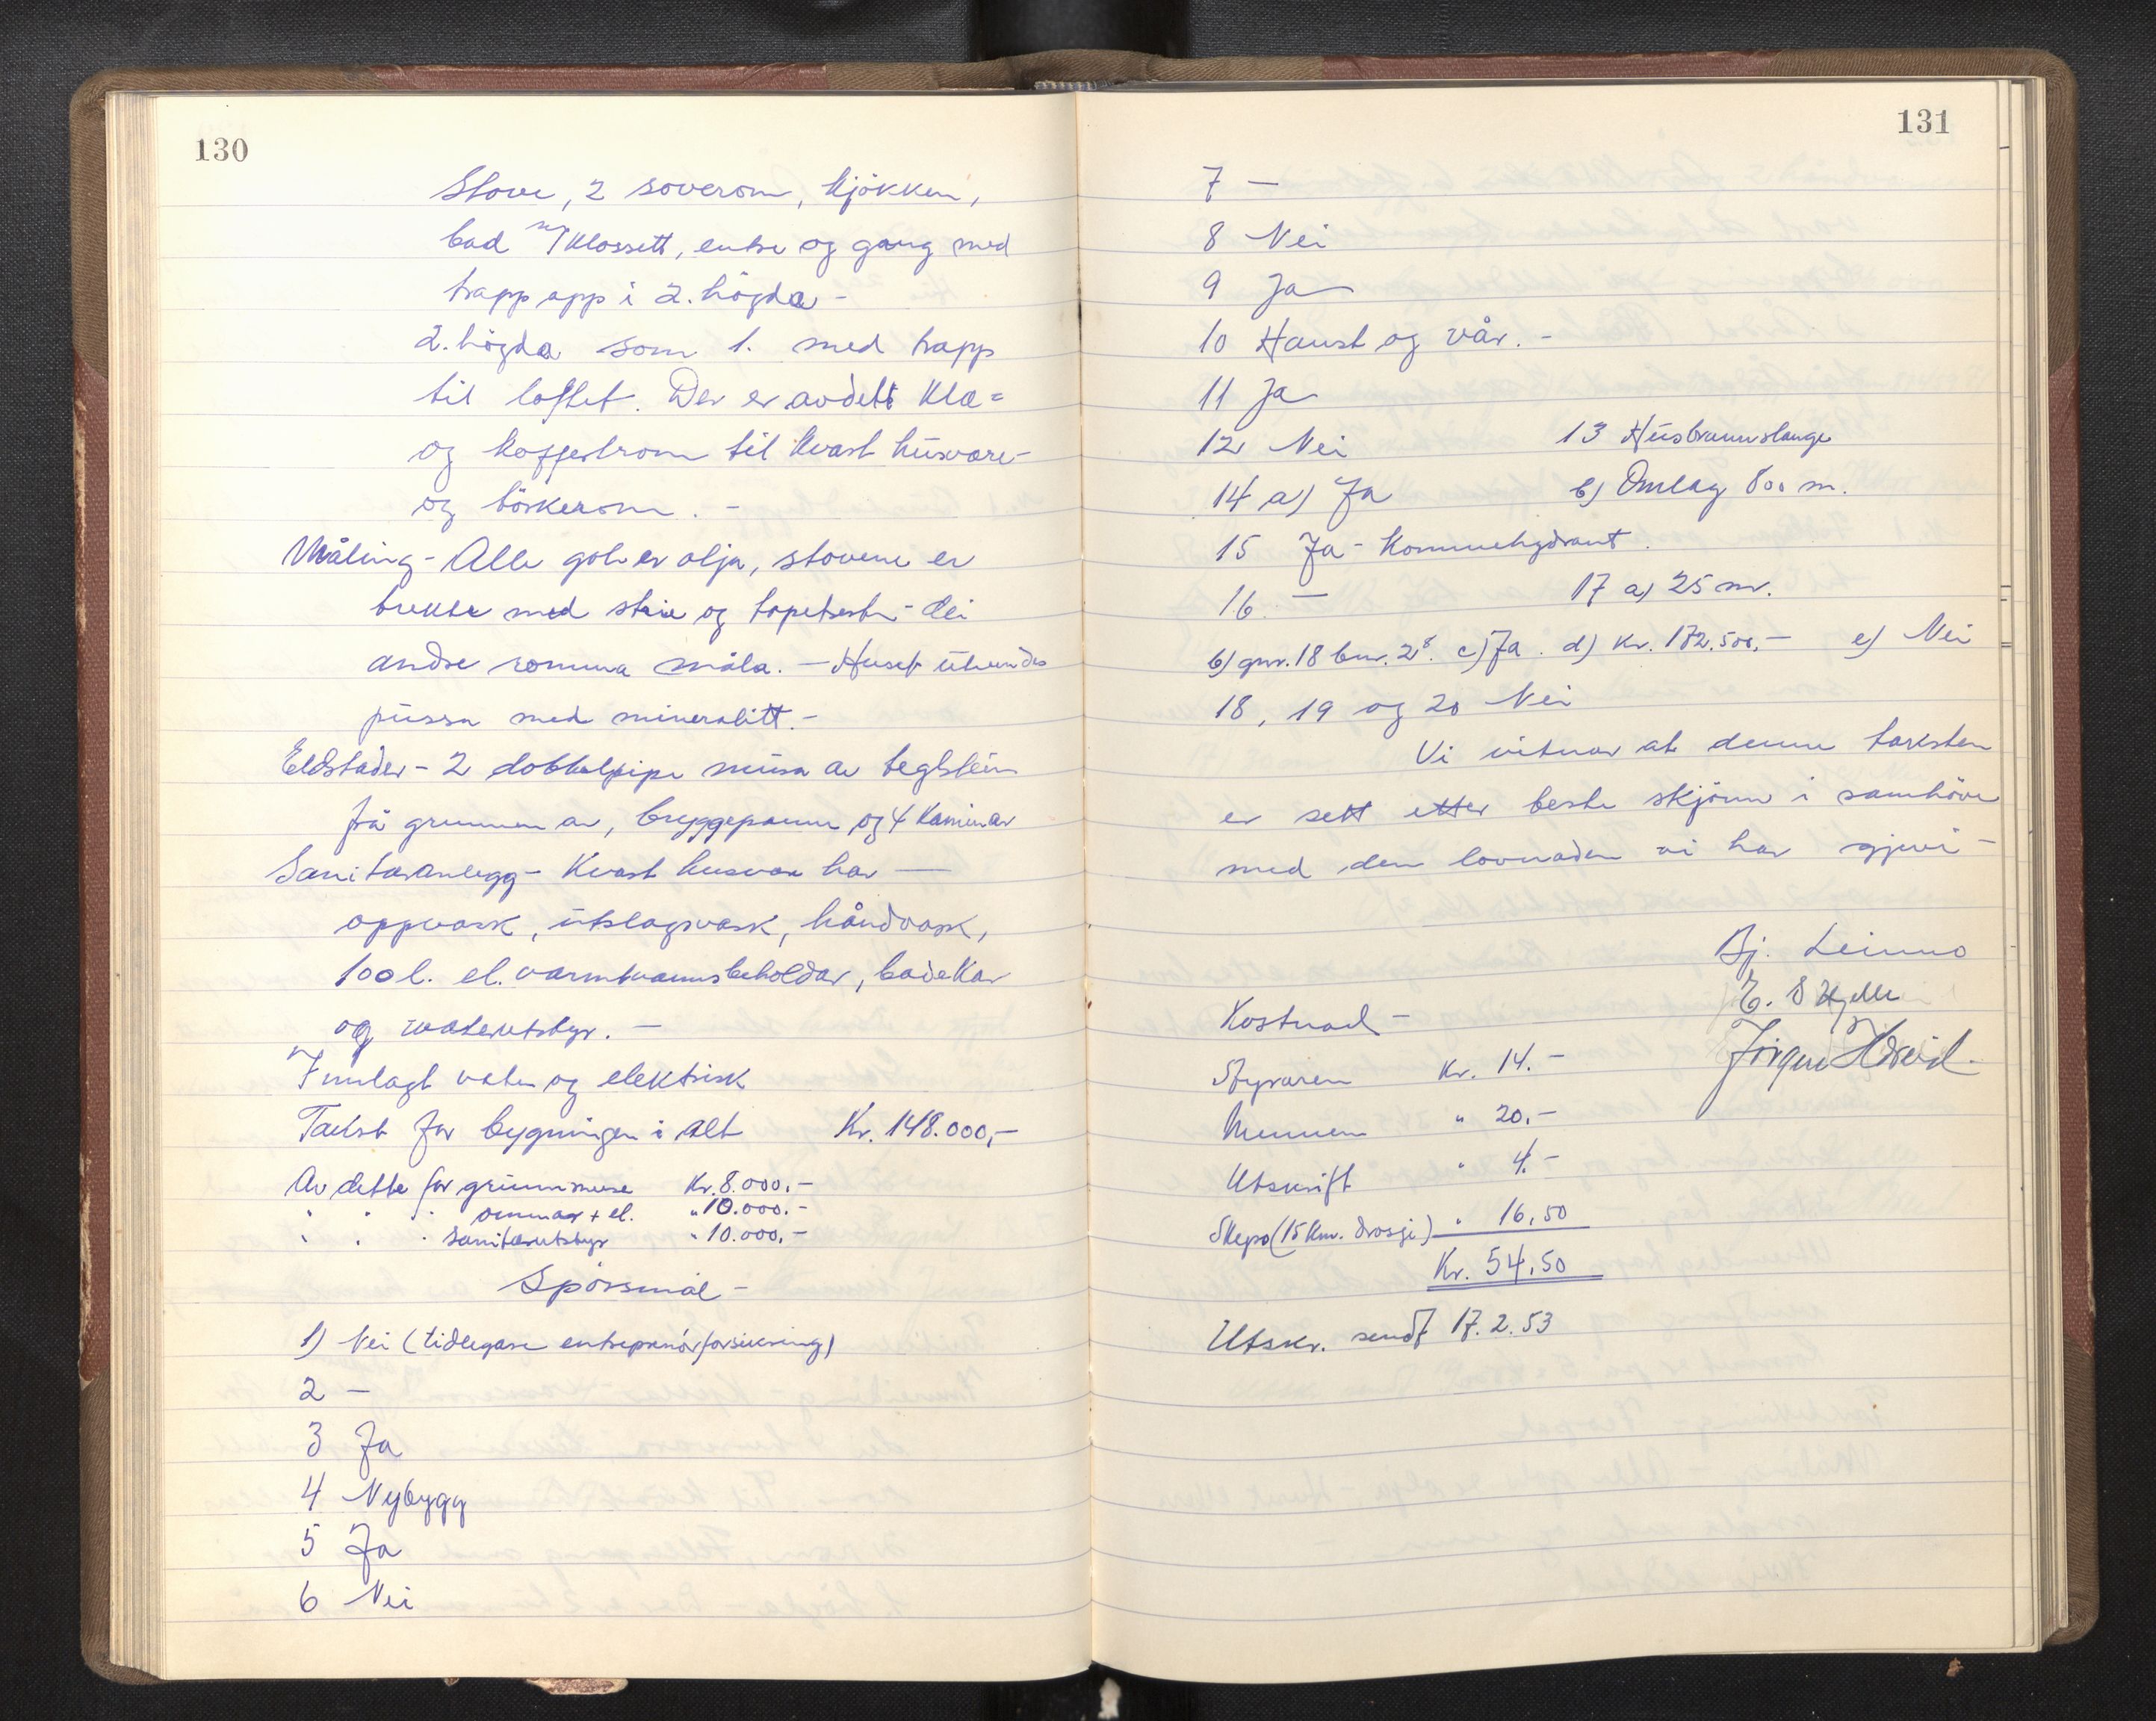 130
Stove, 2 soverom, kjökken,
bad m/klossett, entre og gang med
trapp opp i 2. högda -
2. högda som 1. med trapp
til loftet. Der er avdelt kle=
og koffertrom til kvart husvære-
og törkerom. -
Måling - Alle golv er olja, stovene er
trekte med strie og tapetserte - dei
andre romma måla. - Huset utvendes
pussa med mineralitt. -
Eldstader - 2 dobbelpipe mura av teglstein
frå grunnen av, bryggepanne og 4 kaminar
Sanitæranlegg - Kvart husvære har -
oppvask, utslagsvask, håndvask,
100 l. el. varmtvannsbeholdar, badekar
og waterutstyr. -
Innlagt vatn og elektrisk
Takst for bygningen i alt Kr. 148.000,-
Av dette for grunnmure Kr. 8.000.-
" " " omnar + el. " 10.000.-
" " " sanitærutstyr " 10.000,-
Spörsmål -
1) Nei (tidlegare entreprenörforsikring)
2 -
3 Ja
4 Nybygg
5 Ja
6 Nei
131
7 -
8 Nei
9 Ja
10 Haust og vår. -
11 Ja
12 Nei 13 Husbrannslange
14 a) Ja b) Omlag 800 m.
15 Ja - Kommehydrant.
16. - 17 a) 25 m.
b) gnr. 18 bnr. 28. c) Ja. d) Kr. 172.500,- e) Nei
18, 19 og 20 Nei
Vi vitnar at denne taksten
er sett etter beste skjönn i samhöve
med den lovnaden vi har gjevi -
Bj. Leinno
E. S Hjelle
Kostnad -
Jörgen
Styraren Kr. 14. -
Mennene " 20. -
Utskrift " 4. -
Skyss (15 km. drosje) " 16,50
Kr. 54,50
Utskr. sendt 17.2.53